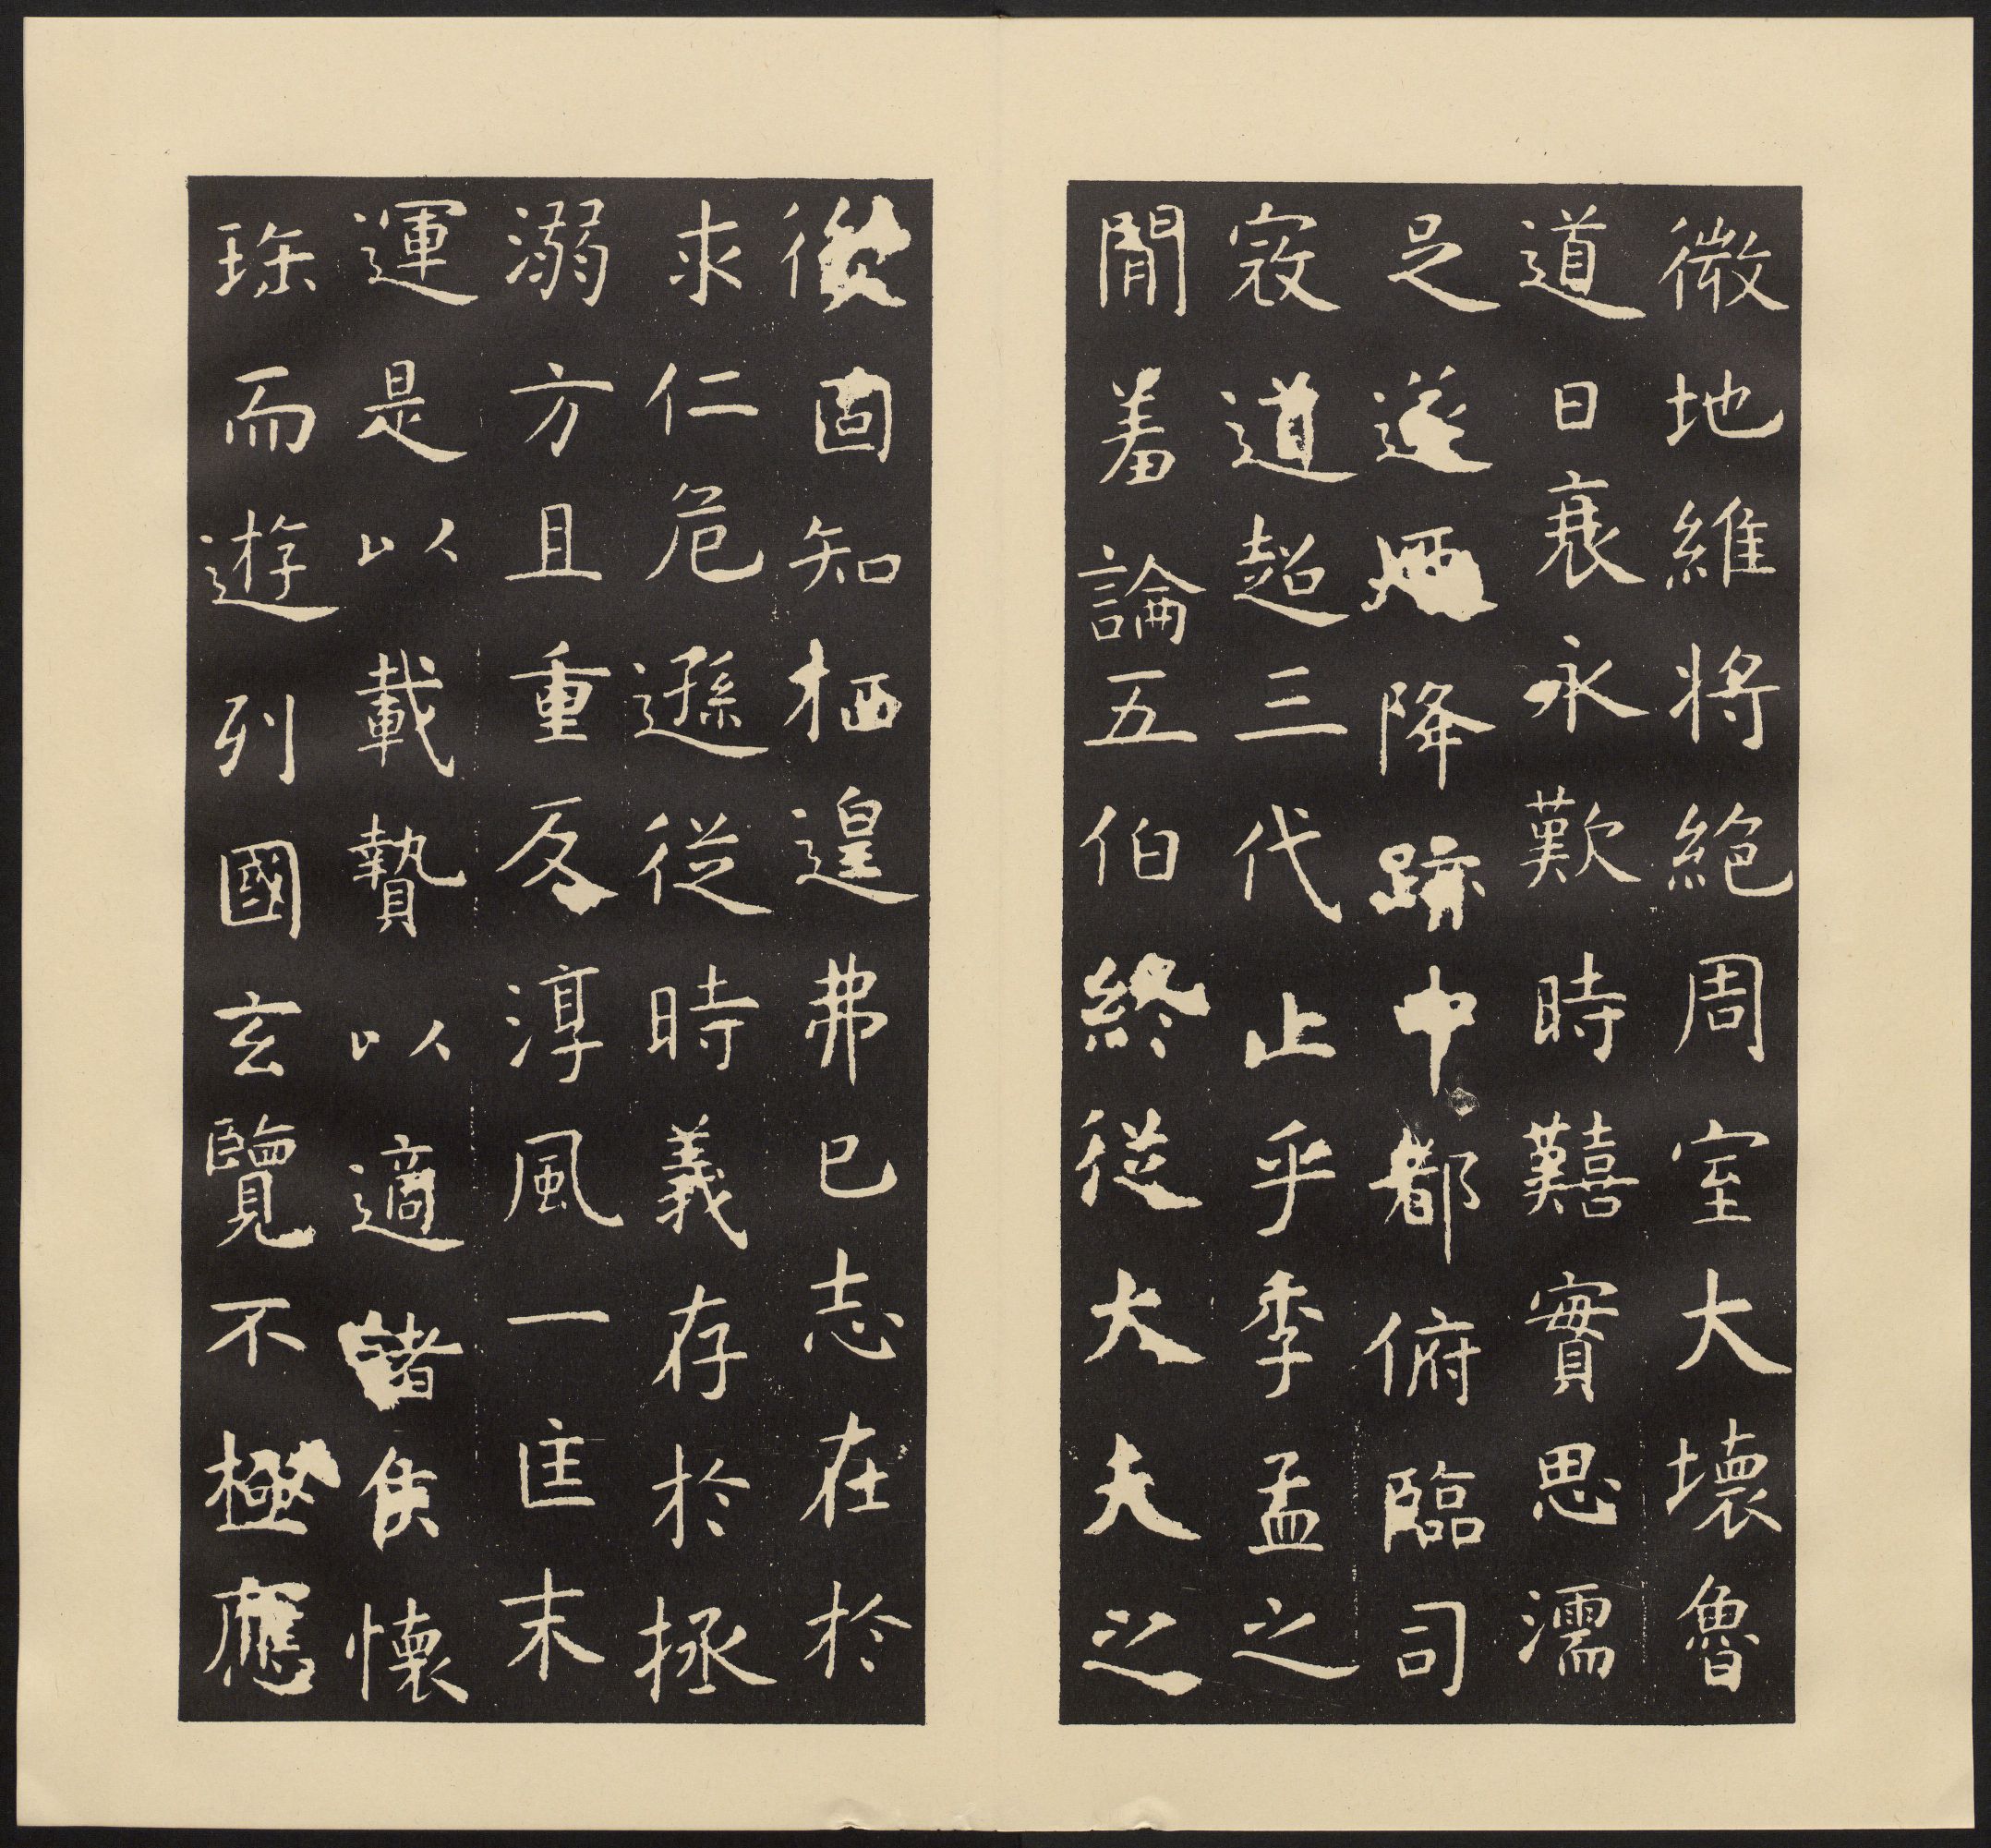 微地維將絕周室大壞魯
道日衰永歎時囏實思濡
足遂廼降跡中都俯臨司
寇道超三代止乎季孟之
閒羞論五伯終從大夫之
後固知栖遑弗已志在於
求仁危遜從時義存於拯
溺方且重反淳風一匡末
運是以載贄以適諸侯懷
珎而遊列國玄覽不極應